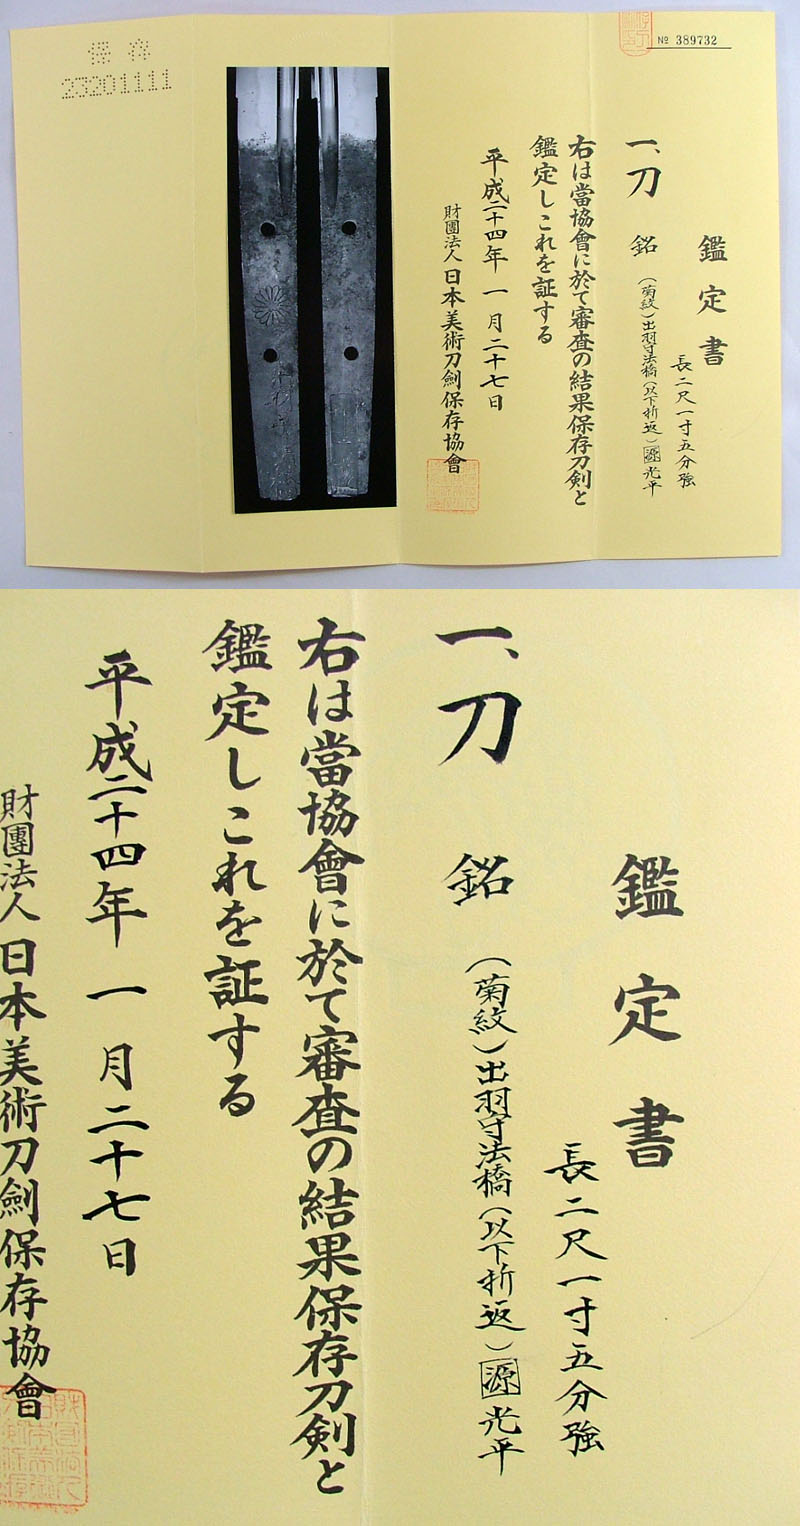 № 389732
鑑定書
長二尺一寸五分強
一、刀 銘 (菊紋)出羽守法橋(以下折返)源光平
右は當協會に於て審査の結果保存刀剣と
鑑定しこれを証する
平成二十四年一月二十七日
財團法人日本美術刀劍保存協會
保存
23201111
鑑定書
長二尺一寸五分強
一、刀 銘 (菊紋)出羽守法橋(以下折返)源光平
右は當協會に於て審査の結果保存刀剣と
鑑定しこれを証する
平成二十四年一月二十七日
財團法人日本美術刀劍保存協會